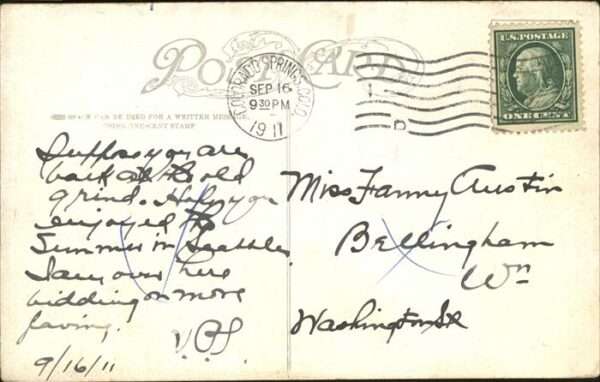 POST CARD
SPACE CAN BE USED FOR A WRITTEN MESSAGE,
COLORADO SPRINGS, COLO.
SEP 16
9 30 PM
1911
D
U.S. POSTAGE
ONE CENT
Suppose you are
back at the old
grind. Hope you
enjoyed the
Summer in Seattle.
I am over here
bidding on more
paving.
9/16/11
Miss Fanny Austin
Bellingham
Wn
Washington St